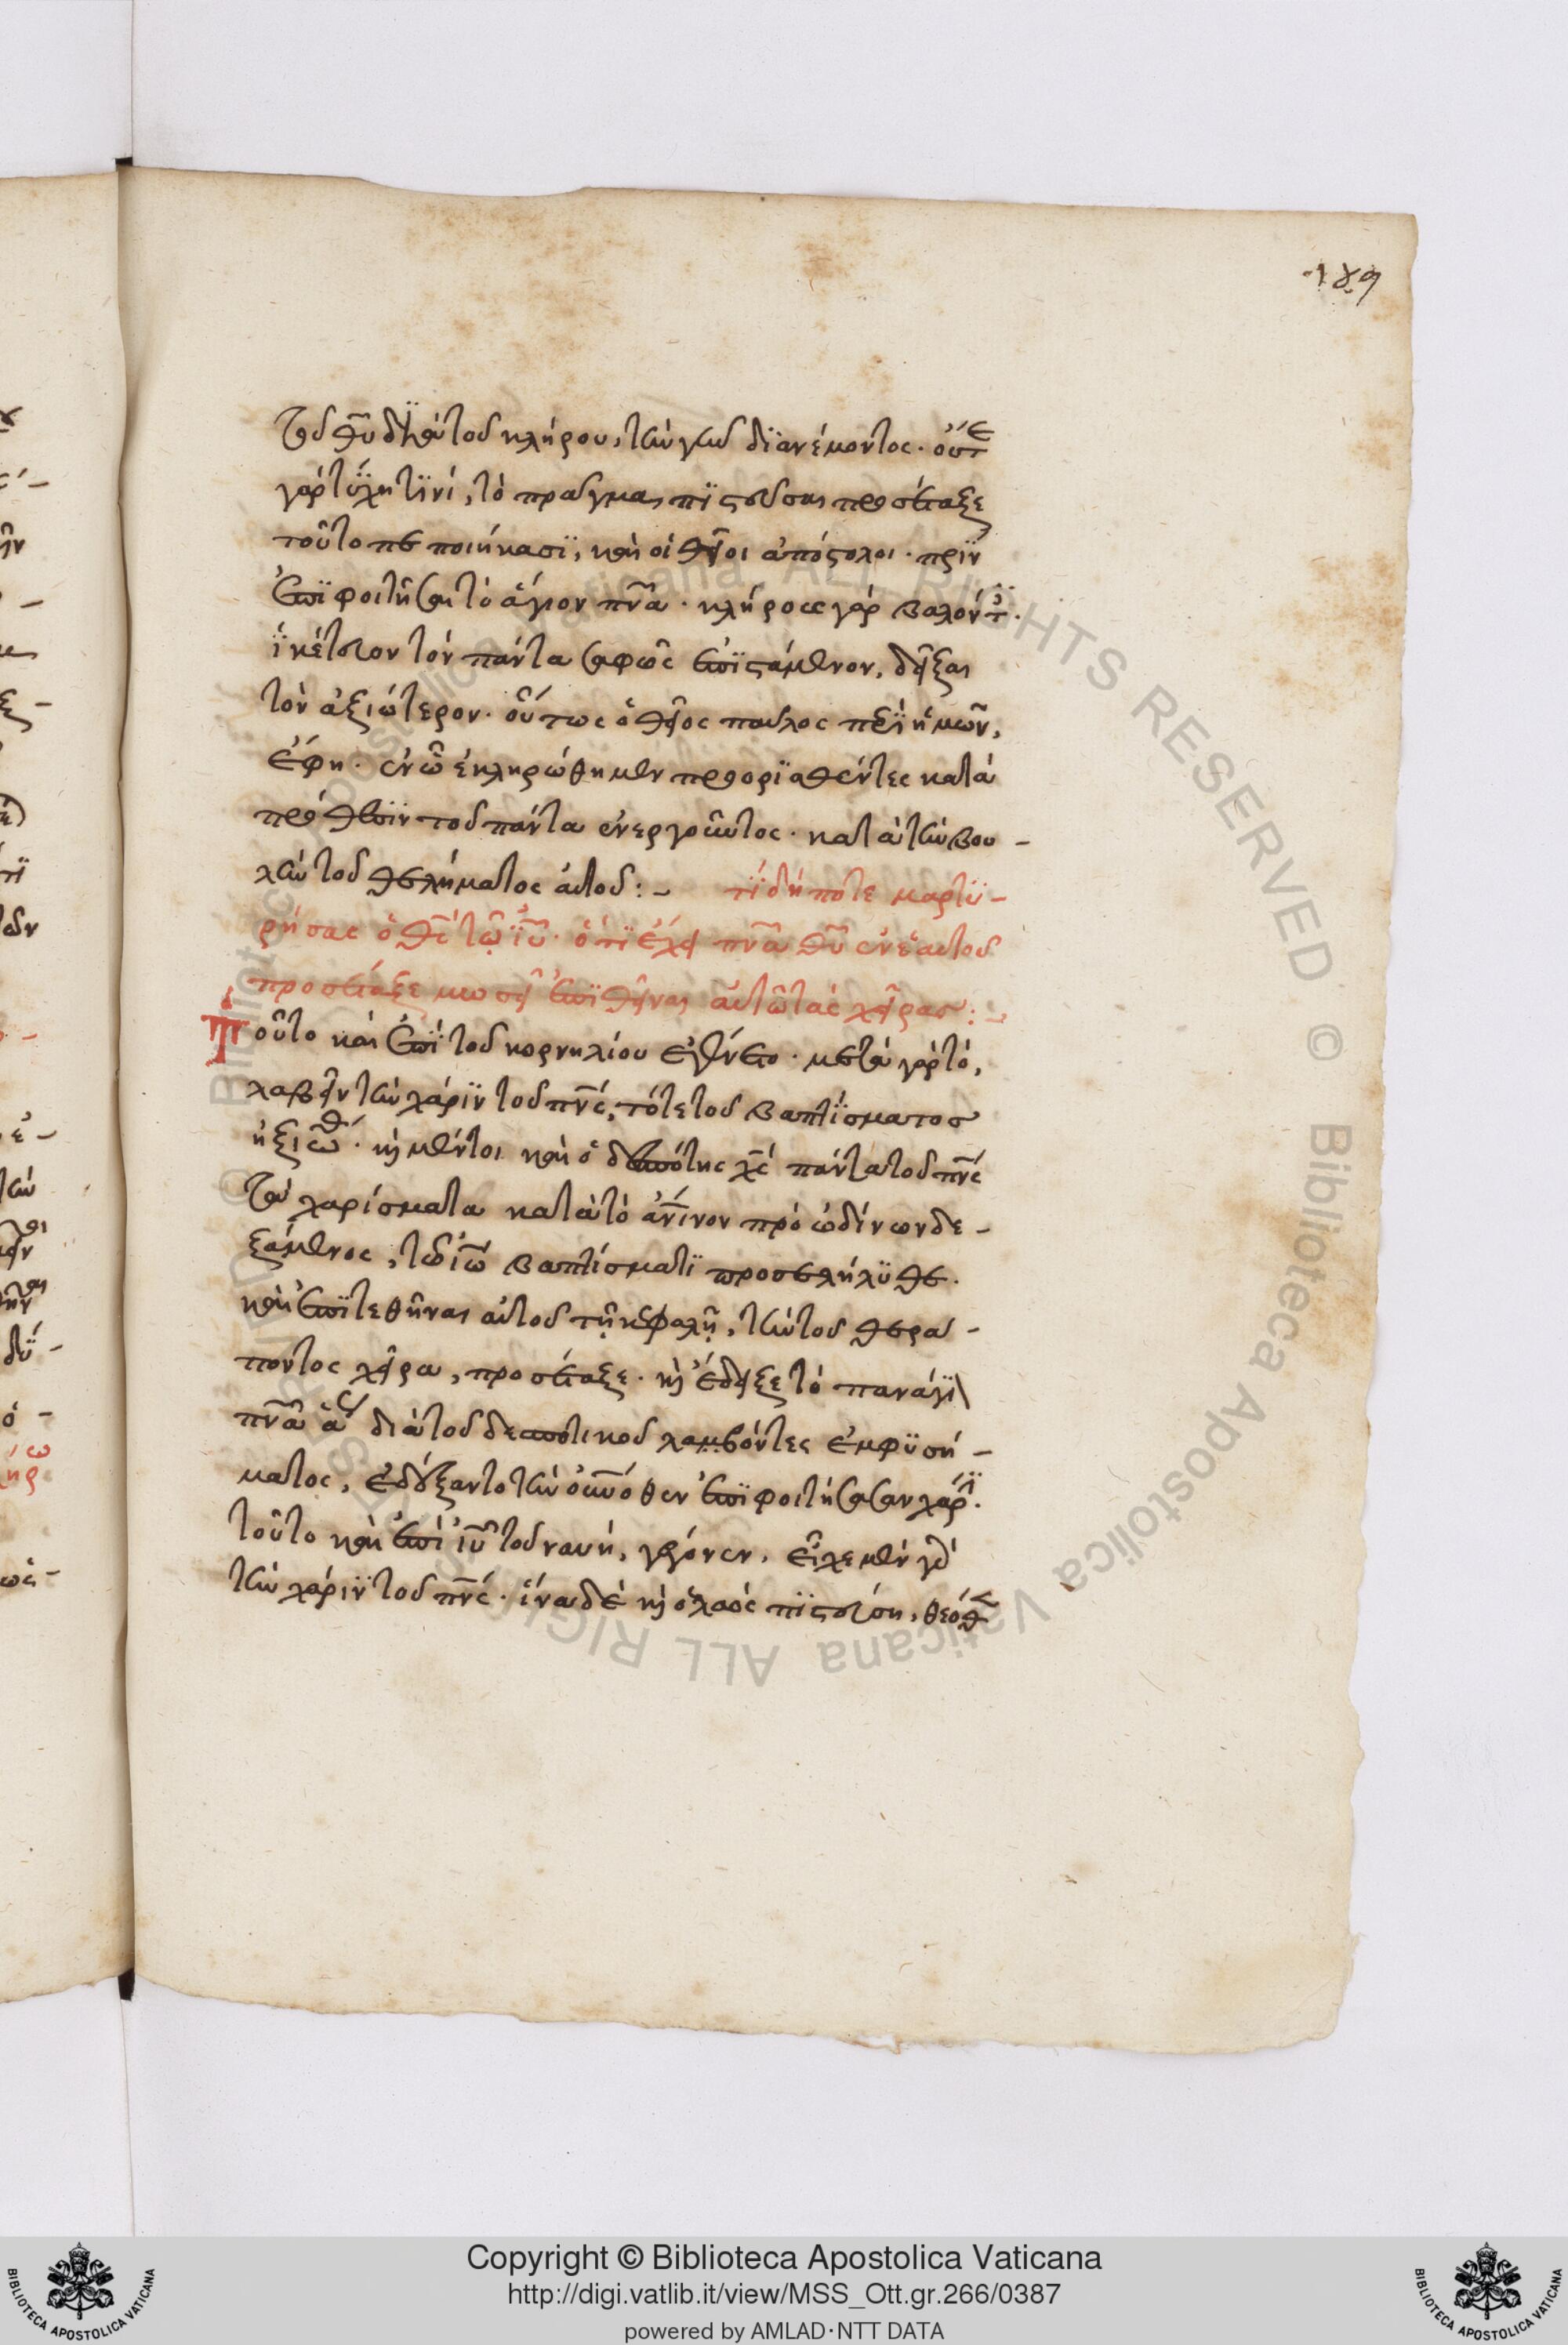 189
τοῦ θῦ διὰ τοῦ κλήρου, τὴν γῆν διανέμοντος. οὔτε
γὰρ τύχη τινί, τὸ πρᾶγμα πιστεῦσαι προσέταξε
τοῦτο πεποιήκασι, καὶ οἱ θεῖοι ἀπόστολοι. πρὶν
ἐπιφοιτῆσαι τὸ ἅγιον πνᾶ. κλήρους γὰρ βαλόντες.
ἱκέτευον τὸν πάντα σαφῶς ἐπιστάμενον, δεῖξαι
τὸν ἀξιώτερον. οὕτως ὁ θεῖος παῦλος περὶ ἡμῶν,
ἔφη. ἐν ᾧ ἐκληρώθημεν προορισθέντες κατὰ
πρόθεσιν τοῦ πάντα ἐνεργοῦντος. κατὰ τὴν βου-
λὴν τοῦ θελήματος αὐτοῦ:- τί δή ποτε μαρτυ-
ρήσας ὁ θς τῷ ἰῦ. ὅτι ἔχει πνᾶ θῦ ἐν ἑαυτοῦ
προσέταξε μωσεῖ ἐπιθεῖναι αὐτῷ τὰς χεῖρας:-
Τοῦτο καὶ ἐπὶ τοῦ κορνηλίου ἐγένετο. μετὰ γὰρ τὸ,
λαβεῖν τὴν χάριν τοῦ πνς, τότε τοῦ βαπτίσματος
ἠξιώθ. καὶ μέντοι καὶ ὁ δεσπότης χς πάντα τοῦ πνς
τὰ χαρίσματα κατὰ τὸ ἀνινον πρὸ ὠδίνων δε-
ξάμενος, τῷ ἰῶ βαπτίσματι προσελήλυθε.
καὶ ἐπιτεθῆναι αὐτοῦ τῇ κεφαλῇ, τὴν τοῦ θερά-
ποντος χεῖρα, προσέταξε. καὶ ἔδειξε τὸ πανάγι
πνᾶ διὰ τοῦ δεσποτικοῦ λαμβόντες ἐμφυσή-
ματος, ἐδέξαντο τὴν οὐνόθεν ἐπιφοιτήσασαν χάρι.
τοῦτο καὶ ἐπὶ ἰῦ τοῦ ναυή, γέγονεν. εἶχε μὲν γὰρ
τὴν χάριν τοῦ πνς. ἵνα δὲ καὶ ὁ λαὸς πιστεύση, θεόθε
Copyright © Biblioteca Apostolica Vaticana
http://digi.vatlib.it/view/MSS_Ott.gr.266/0387
powered by AMLAD·NTT DATA